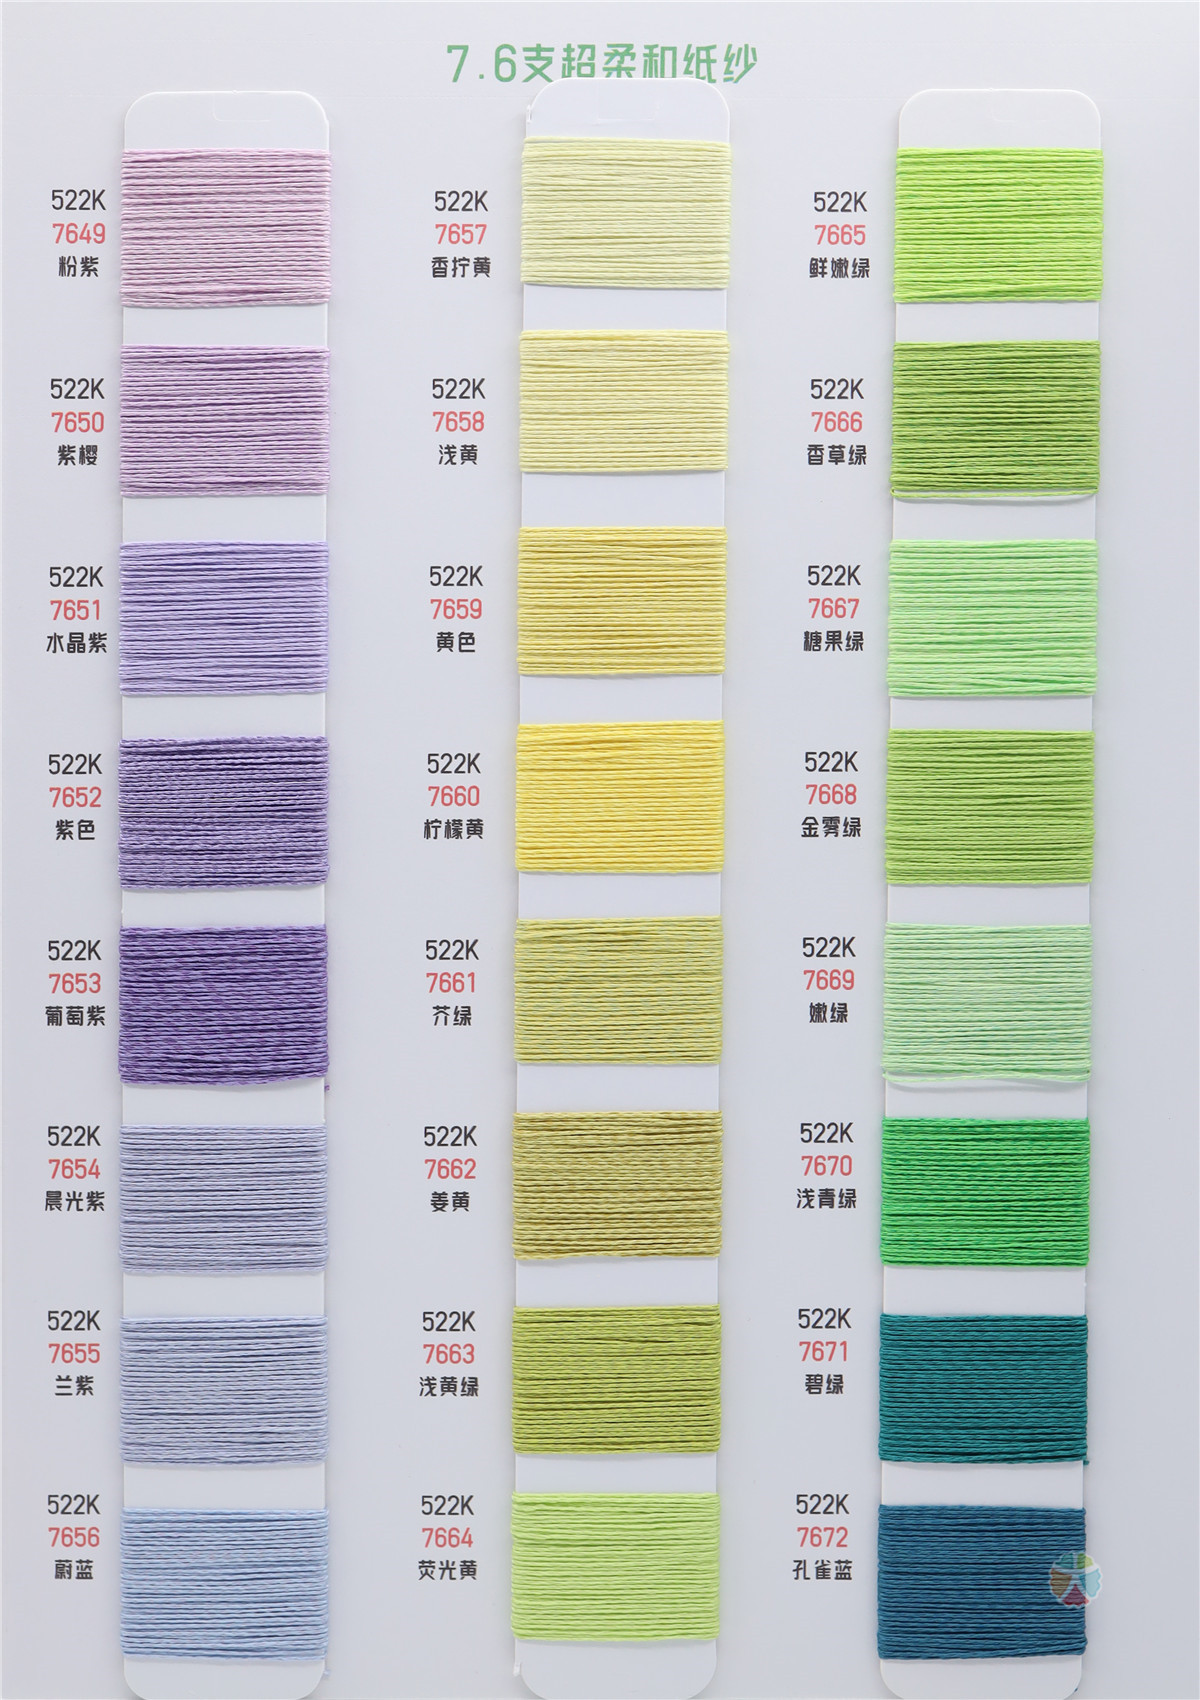 7.6支超柔和纸纱
522K
7649
粉紫
522K
7650
紫樱
522K
7651
水晶紫
522K
7652
紫色
522K
7653
葡萄紫
522K
7654
晨光紫
522K
7655
兰紫
522K
7656
蔚蓝
522K
7657
香拧黄
522K
7658
浅黄
522K
7659
黄色
522K
7660
柠檬黄
522K
7661
芥绿
522K
7662
姜黄
522K
7663
浅黄绿
522K
7664
荧光黄
522K
7665
鲜嫩绿
522K
7666
香草绿
522K
7667
糖果绿
522K
7668
金雾绿
522K
7669
嫩绿
522K
7670
浅青绿
522K
7671
碧绿
522K
7672
孔雀蓝